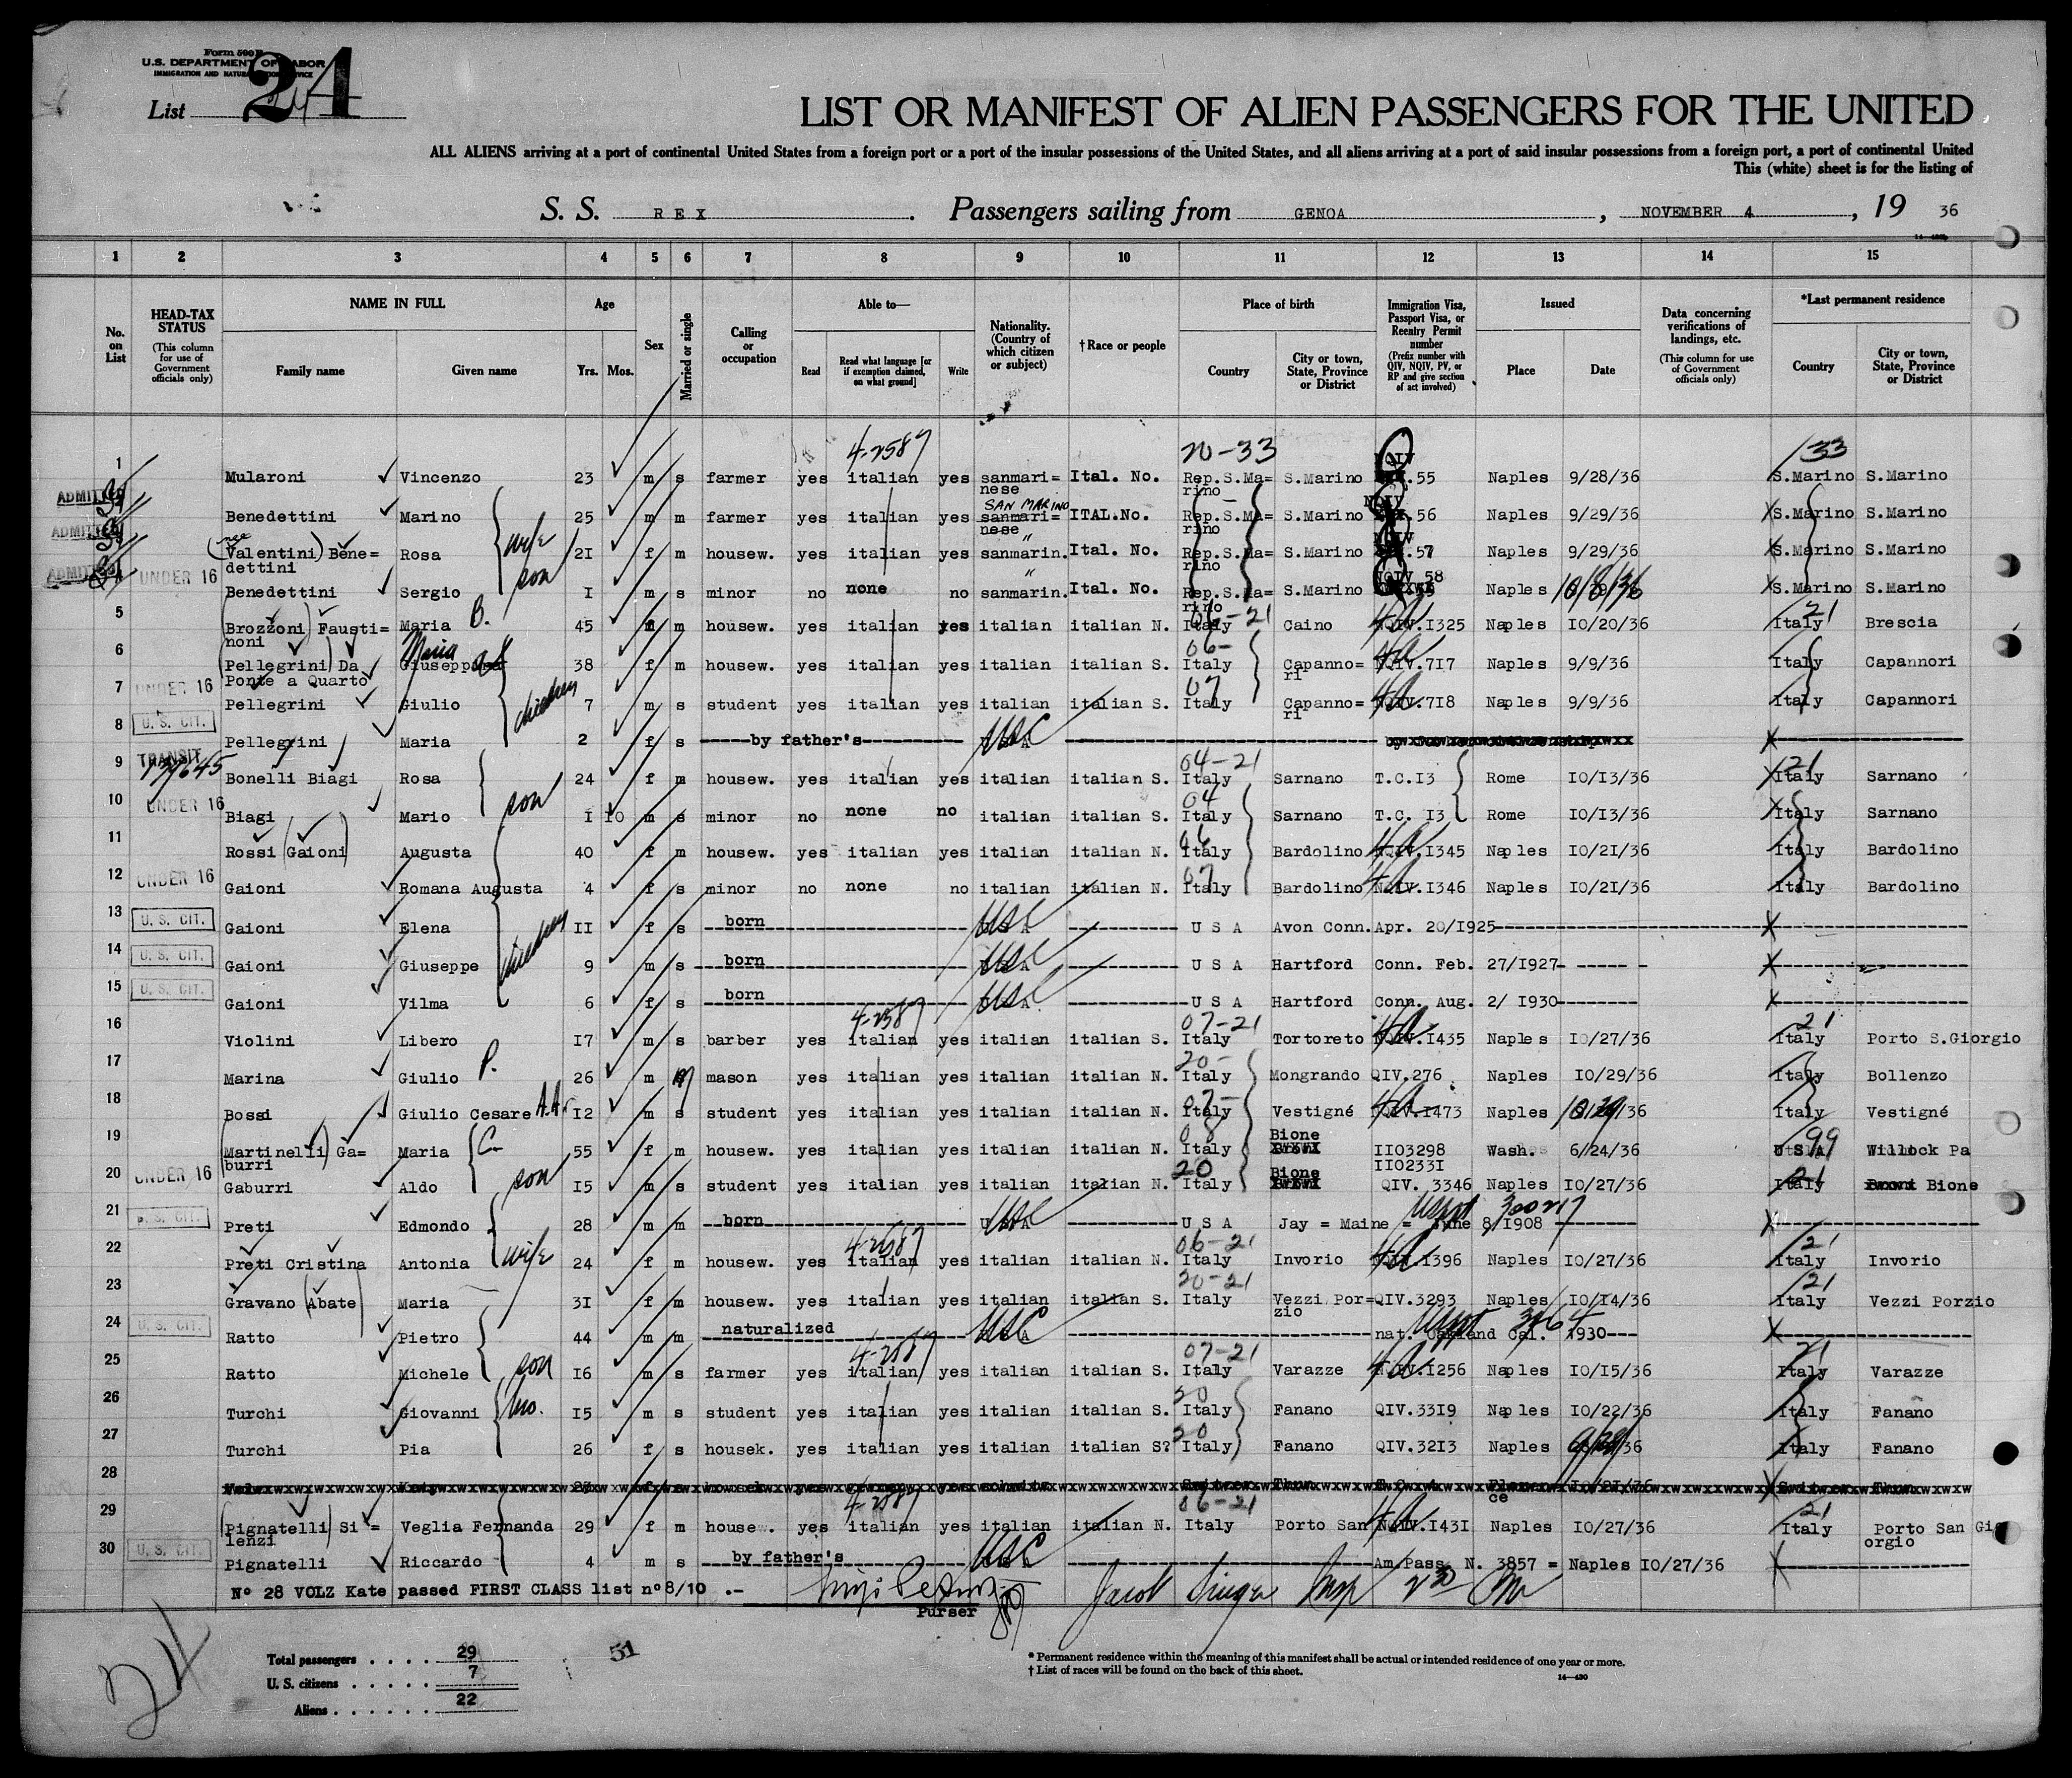 Form 500 B
U.S. DEPARTMENT OF LABOR
IMMIGRATION AND NATURALIZATION SERVICE
List 24
LIST OR MANIFEST OF ALIEN PASSENGERS FOR THE UNITED
ALL ALIENS arriving at a port of continental United States from a foreign port or a port of the insular possessions of the United States, and all aliens arriving at a port of said insular possessions from a foreign port, a port of continental United
This (white) sheet is for the listing of
S. S. REX. Passengers sailing from GENOA, NOVEMBER 4, 19 36
1 2 3 4 5 6 7 8 9 10 11 12 13 14 15
No. on List
HEAD-TAX STATUS (This column for use of Government officials only)
NAME IN FULL Family name Given name
Age Yrs. Mos.
Sex
Married or single
Calling or occupation
Able to— Read Read what language [or if exemption claimed, on what ground] Write
Nationality. (Country of which citizen or subject)
†Race or people
Place of birth Country City or town, State, Province or District
Immigration Visa, Passport Visa, or Reentry Permit number (Prefix number with QIV, NQIV, PV, or RP and give section of act involved)
Issued Place Date
Data concerning verifications of landings, etc. (This column for use of Government officials only)
*Last permanent residence Country City or town, State, Province or District
4-2587 20-33 33
1 Mularoni Vincenzo 23 m s farmer yes italian yes sanmari= nese Ital. No. Rep.S.Ma= rino S.Marino NQIV .55 Naples 9/28/36 S.Marino S.Marino
ADMITTED Benedettini Marino 25 m m farmer yes italian yes sanmari= nese SAN MARINO ITAL.No. Rep.S.Ma= rino S.Marino NQIV .56 Naples 9/29/36 S.Marino S.Marino
ADMITTED (nee Valentini) Bene= dettini Rosa wife 2I f m housew. yes italian yes sanmarin. Ital. No. Rep.S.Ma= rino S.Marino NQIV .57 Naples 9/29/36 S.Marino S.Marino
ADMITTED UNDER 16 Benedettini Sergio son I m s minor no none no sanmarin. Ital. No. Rep.S.Ma= rino S.Marino NQIV 58 Naples 10/8/36 S.Marino S.Marino
5 (Brozzoni) Fausti= noni Maria B. 45 f m housew. yes italian yes italian italian N. 06-21 Italy Caino NQIV.I325 Naples IO/20/36 21 Italy Brescia
6 (Pellegrini) Da Ponte a Quarto Maria Giuseppa 38 f m housew. yes italian yes italian italian S. 06- Italy Capanno= ri NQIV.717 Naples 9/9/36 Italy Capannori
7 UNDER 16 Pellegrini Giulio children 7 m s student yes italian yes italian italian S. 07 Italy Capanno= ri NQIV.718 Naples 9/9/36 Italy Capannori
8 U. S. CIT. Pellegrini Maria 2 f s by father's USC
9 TRANSIT Bonelli Biagi Rosa 24 f m housew. yes italian yes italian italian S. 04-21 Italy Sarnano T.C.I3 Rome IO/I3/36 21 Italy Sarnano
10 UNDER 16 Biagi Mario son I IO m s minor no none no italian italian S. 04 Italy Sarnano T.C. I3 Rome IO/I3/36 Italy Sarnano
11 Rossi (Gaioni) Augusta 40 f m housew. yes italian yes italian italian N. 06 Italy Bardolino NQIV.I345 Naples IO/2I/36 Italy Bardolino
12 UNDER 16 Gaioni Romana Augusta 4 f s minor no none no italian italian N. 07 Italy Bardolino NQIV.I346 Naples IO/2I/36 Italy Bardolino
13 U. S. CIT. Gaioni Elena children II f s born USC U S A Avon Conn. Apr. 20/I925
14 U. S. CIT. Gaioni Giuseppe 9 m s born USC U S A Hartford Conn. Feb. 27/I927
15 U. S. CIT. Gaioni Vilma 6 f s born USC U S A Hartford Conn. Aug. 2/ I930
16 Violini Libero I7 m s barber yes 4-2587 italian yes italian italian S. 07-21 Italy Tortoreto NQIV.I435 Naples IO/27/36 21 Italy Porto S.Giorgio
17 Marina Giulio P. 26 m m mason yes italian yes italian italian N. 20- Italy Mongrando QIV.276 Naples IO/29/36 Italy Bollenzo
18 Bossi Giulio Cesare I2 m s student yes italian yes italian italian N. 07- Italy Vestigné NQIV.I473 Naples 10/29/36 Italy Vestigné
19 (Martinelli) Ga= burri Maria C. 55 f m housew. yes italian yes italian italian N. 08 Italy Bione IIO3298 Wash. 6/24/36 99 U S A Willock Pa
20 UNDER 16 Gaburri Aldo son I5 m s student yes italian yes italian italian N. 20 Italy Bione IIO233I QIV. 3346 Naples IO/27/36 21 Italy Bione
21 U. S. CIT. Preti Edmondo 28 m m born USC U S A Jay = Maine = June 8/I908
22 Preti Cristina Antonia wife 24 f m housew. yes 4-2587 italian yes italian italian N. 06-21 Italy Invorio NQIV.I396 Naples IO/27/36 21 Italy Invorio
23 Gravano (Abate) Maria 3I f m housew. yes italian yes italian italian S. 20-21 Italy Vezzi Por= zio QIV.3293 Naples IO/I4/36 21 Italy Vezzi Porzio
24 U. S. CIT. Ratto Pietro 44 m m naturalized USC nat. Oakland Cal. I930
25 Ratto Michele son I6 m s farmer yes 4-2587 italian yes italian italian S. 07-21 Italy Varazze NQIV.I256 Naples IO/I5/36 21 Italy Varazze
26 Turchi Giovanni bro. I5 m s student yes italian yes italian italian S. 20 Italy Fanano QIV.33I9 Naples IO/22/36 Italy Fanano
27 Turchi Pia 26 f s housek. yes italian yes italian italian S? 20 Italy Fanano QIV.32I3 Naples 9/29/36 Italy Fanano
28
29 (Pignatelli) Si = lenzi Veglia Fernanda 29 f m house. yes 4-2587 italian yes italian italian N. 06-21 Italy Porto San NQIV.I43I Naples IO/27/36 21 Italy Porto San Gi orgio
30 U. S. CIT. Pignatelli Riccardo 4 m s by father's USC Am.Pass. N. 3857 = Naples IO/27/36
N° 28 VOLZ Kate passed FIRST CLASS list n°8/10 .-
Purser
Jacob Singer Insp
24
Total passengers . . . . 29
U. S. citizens . . . . . 7
Aliens . . . . . . 22
51
* Permanent residence within the meaning of this manifest shall be actual or intended residence of one year or more.
† List of races will be found on the back of this sheet.
14—430